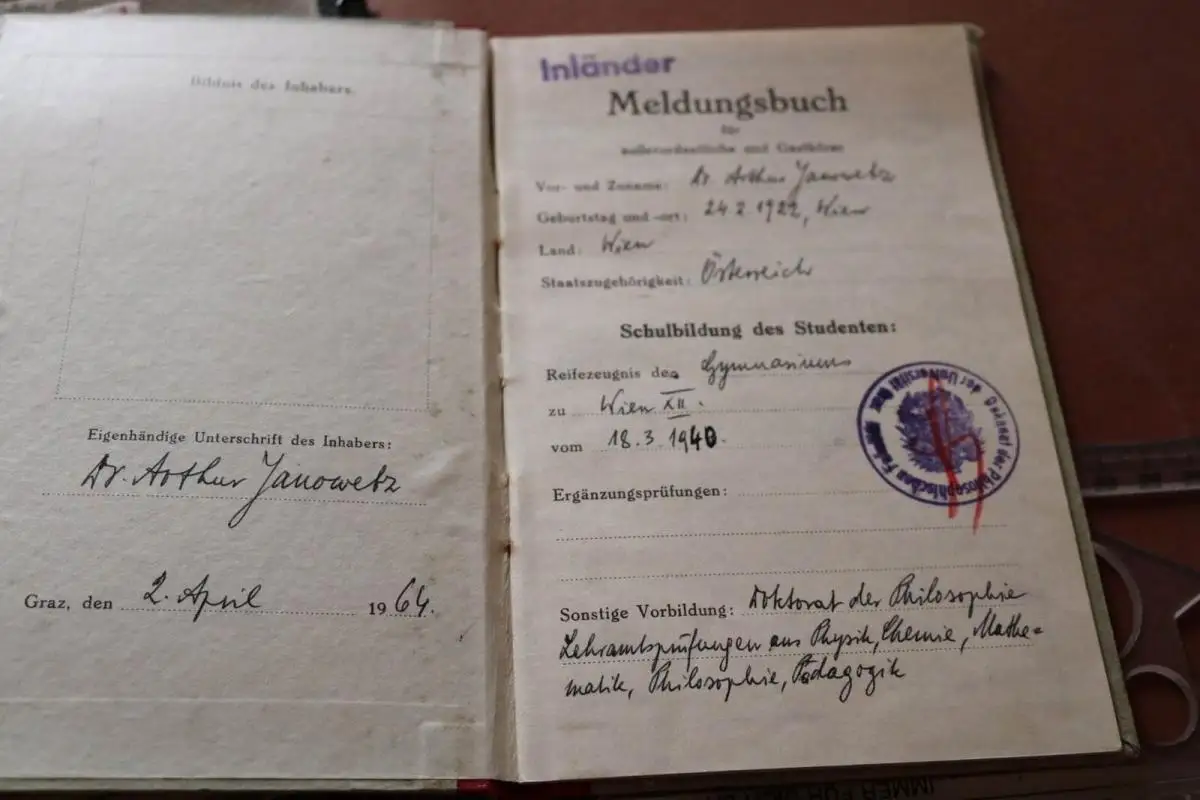 Bildnis des Inhabers.
Eigenhändige Unterschrift des Inhabers:
Dr. Arthur Janowetz
Graz, den 2. April 1964.
Inländer
Meldungsbuch
für
außerordentliche und Gasthörer
Vor- und Zuname: Dr. Arthur Janowetz
Geburtstag und -ort: 24.2.1922, Wien
Land: Wien
Staatszugehörigkeit: Österreich
Schulbildung des Studenten:
Reifezeugnis des Gymnasiums
zu Wien XII.
vom 18.3.1940.
Ergänzungsprüfungen:
Dekanat der Philosophischen Fakultät der Universität Graz
Sonstige Vorbildung: Doktorat der Philosophie
Lehramtsprüfungen aus Physik, Chemie, Mathe=
matik, Philosophie, Pädagogik
IMMER FÜR